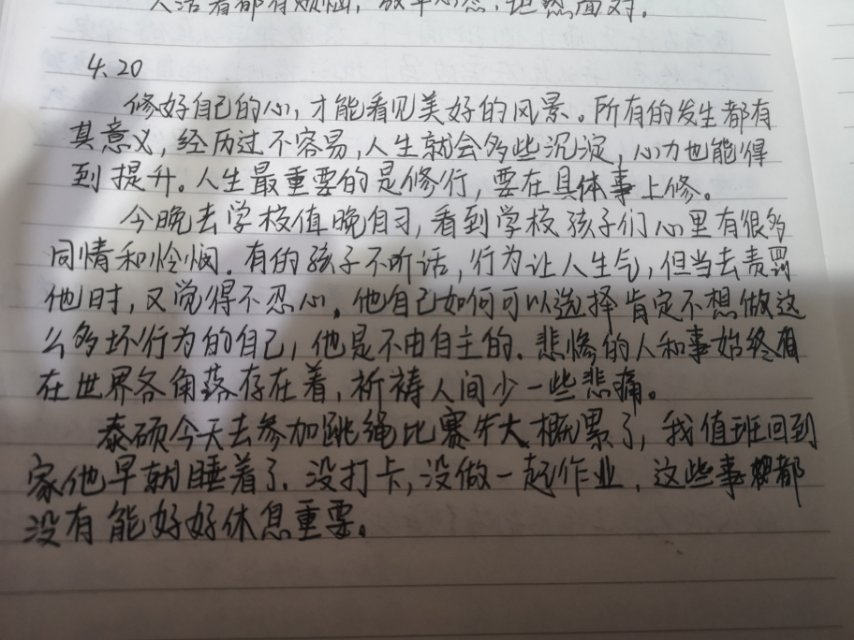 人活着都有烦恼,放平心态,坦然面对。
4.20
修好自己的心,才能看见美好的风景。所有的发生都有
其意义,经历过不容易,人生就会多些沉淀,心力也能得
到提升。人生最重要的是修行,要在具体事上修。
今晚去学校值晚自习,看到学校孩子们心里有很多
同情和怜悯。有的孩子不听话,行为让人生气,但当去责罚
他时,又觉得不忍心。他自己如何可以选择肯定不想做这
么多坏行为的自己,他是不由自主的。悲惨的人和事始终
在世界各角落存在着,祈祷人间少一些悲痛。
泰硕今天去参加跳绳比赛大概累了,我值班回到
家他早就睡着了。没打卡,没做一起作业,这些事都
没有能好好休息重要。